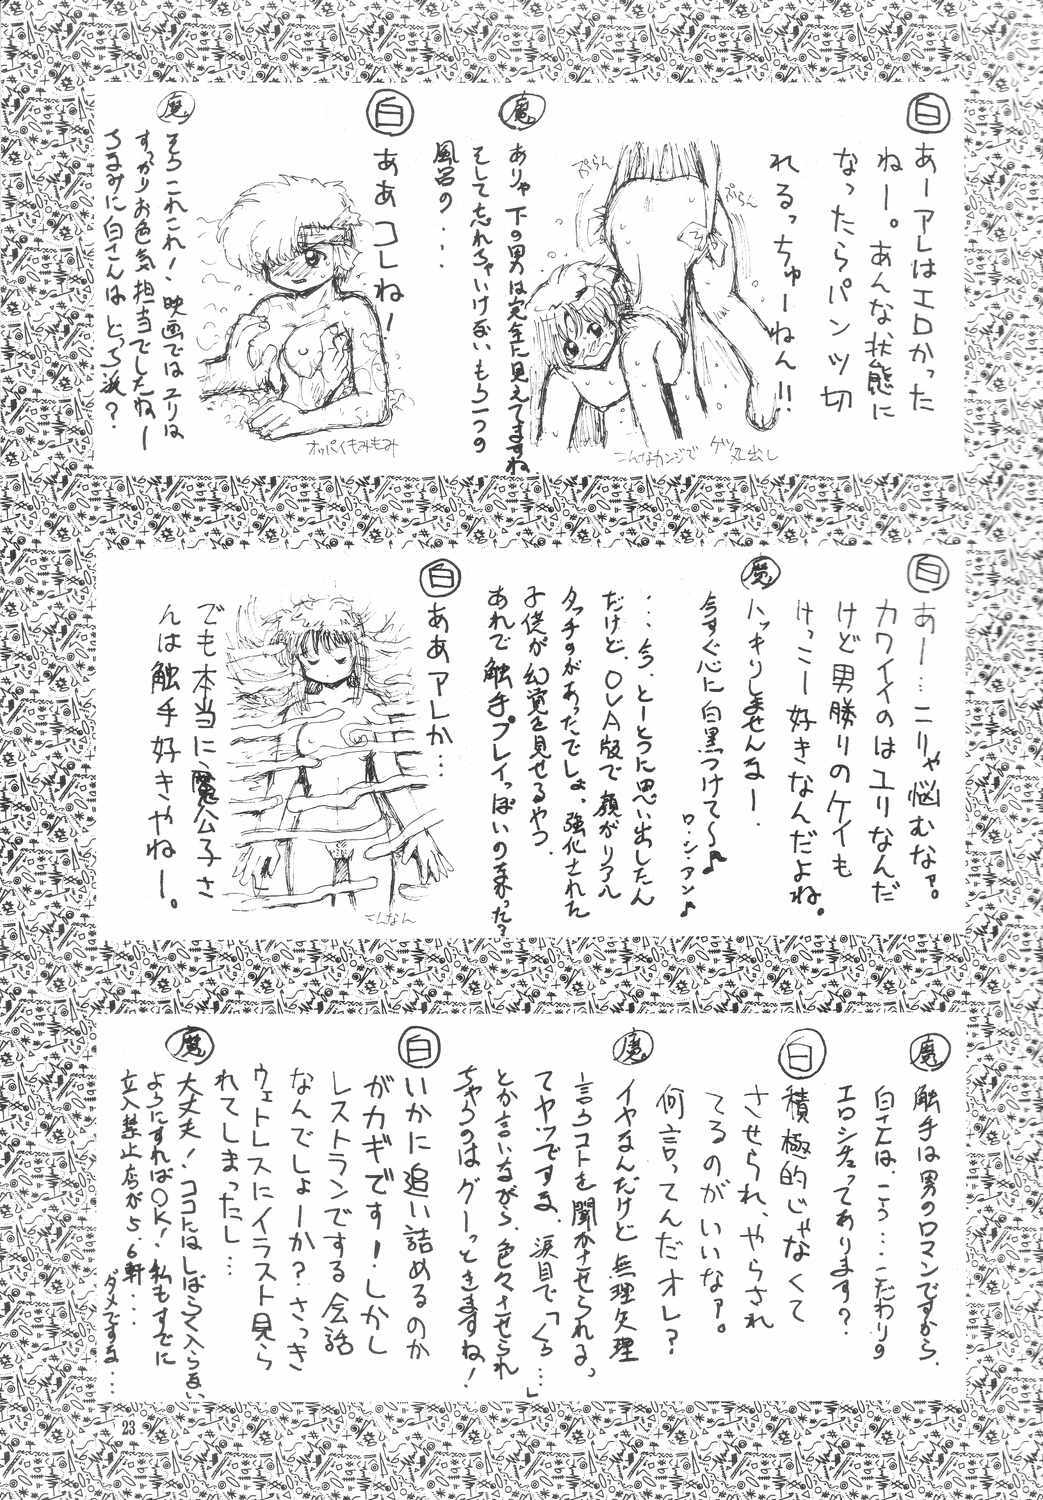 白
あーアレはエロかった
ねー。あんな状態に
なったらパンツ切
れるっちゅーねん!!
ぷらん
ぷらん
こんなカンジで
ゲツ丸出し
魔
ありゃ下の男は完全に見えてますね
そして忘れちゃいけないもう一つの
風呂の・・・・
白
ああコレねー
オッパイもみもみ
魔
そうこれこれ!映画ではユリは
すっかりお色気担当でしたねー
ちなみに白さんはどっち派?
白
あー…こりゃ悩むなァ。
カワイイのはユリなんだ
けど男勝りのケイも
けっこー好きなんだよね。
魔
ハッキリしませんなー
今すぐ心に白黒つけて〜♪
ロ・シ・ア・ン♪
・・・今、とーとつに思い出したん
だけど、OVA版で顔がリアル
タッチのがあったでしょ、強化された
子供が幻覚を見せるやつ。
あれで触手プレイっぽいの無かった?
白
ああアレか…
こんなん
でも本当に魔公子さ
んは触手好きやねー。
魔
触手は男のロマンですから。
白さんは、こう…こだわりの
エロシチュってあります?
白
積極的じゃなくて
させられ、やらされ
てるのがいいなァ。
何言ってんだオレ?
魔
イヤなんだけど無理矢理
言うコトを聞かさせられる、
てヤツですな、涙目で「くぅ…」
とか言いながら色々させられ
ちゃうのはグーっときますね!
白
いかに追い詰めるのか
がカギですー しかし
レストランでする会話
なんでしょーか?さっき
ウェトレスにイラスト見ら
れてしまったし…
魔
大丈夫!ココにはしばらく入らない
ようにすればOK!私もすでに
立入禁止店が5、6軒・・・
ダメですな・・・
23